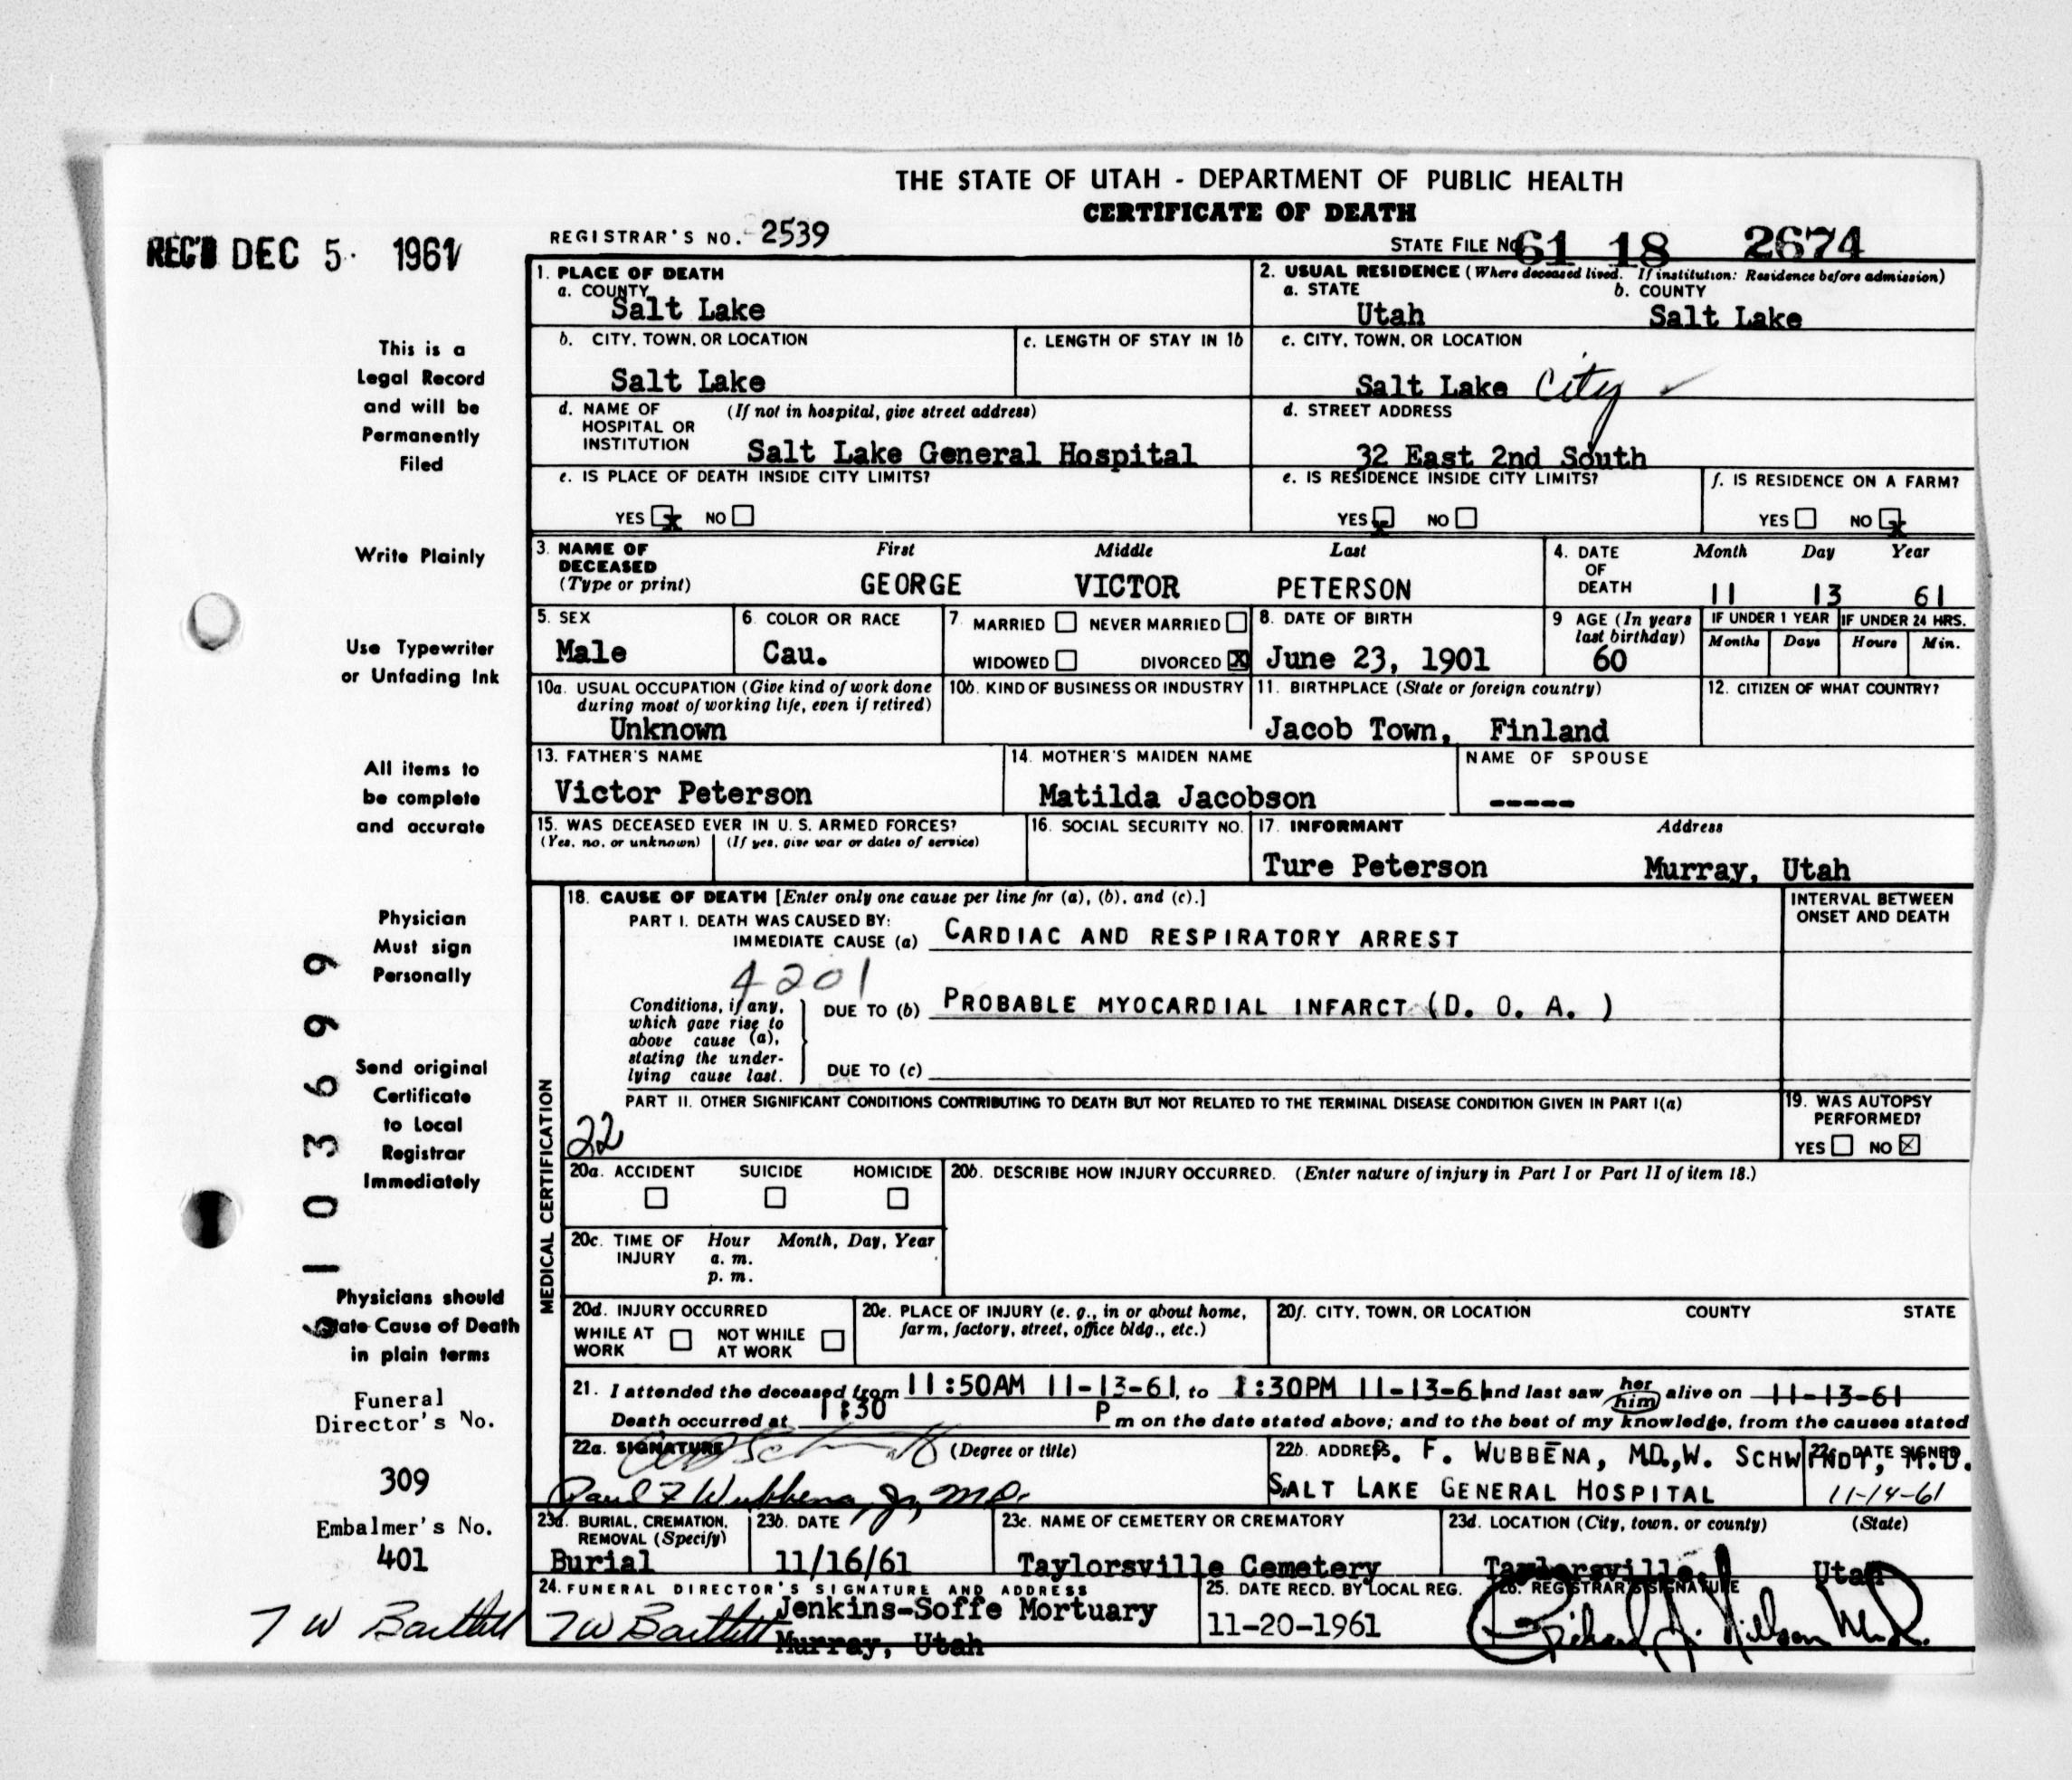 THE STATE OF UTAH - DEPARTMENT OF PUBLIC HEALTH
CERTIFICATE OF DEATH
REGISTRAR'S NO. 2539
STATE FILE NO. 61 18 2674
REC'D DEC 5 1961
This is a
Legal Record
and will be
Permanently
Filed
Write Plainly
Use Typewriter
or Unfading Ink
All items to
be complete
and accurate
Physician
Must sign
Personally
Send original
Certificate
to Local
Registrar
Immediately
Physicians should
State Cause of Death
in plain terms
Funeral
Director's No.
309
Embalmer's No.
401
T W Bartlett
103699
1. PLACE OF DEATH
a. COUNTY
Salt Lake
2. USUAL RESIDENCE (Where deceased lived. If institution: Residence before admission)
a. STATE b. COUNTY
Utah Salt Lake
b. CITY, TOWN, OR LOCATION
Salt Lake
c. LENGTH OF STAY IN 1b
c. CITY, TOWN, OR LOCATION
Salt Lake City
d. NAME OF (If not in hospital, give street address)
HOSPITAL OR
INSTITUTION
Salt Lake General Hospital
d. STREET ADDRESS
32 East 2nd South
e. IS PLACE OF DEATH INSIDE CITY LIMITS?
YES x NO
e. IS RESIDENCE INSIDE CITY LIMITS?
YES x NO
f. IS RESIDENCE ON A FARM?
YES NO x
3. NAME OF First Middle Last
DECEASED
(Type or print) GEORGE VICTOR PETERSON
4. DATE Month Day Year
OF
DEATH 11 13 61
5. SEX
Male
6. COLOR OR RACE
Cau.
7. MARRIED NEVER MARRIED
WIDOWED DIVORCED X
8. DATE OF BIRTH
June 23, 1901
9 AGE (In years
last birthday)
60
IF UNDER 1 YEAR IF UNDER 24 HRS.
Months Days Hours Min.
10a. USUAL OCCUPATION (Give kind of work done
during most of working life, even if retired)
Unknown
10b. KIND OF BUSINESS OR INDUSTRY
11. BIRTHPLACE (State or foreign country)
Jacob Town, Finland
12. CITIZEN OF WHAT COUNTRY?
13. FATHER'S NAME
Victor Peterson
14. MOTHER'S MAIDEN NAME
Matilda Jacobson
NAME OF SPOUSE
-----
15. WAS DECEASED EVER IN U. S. ARMED FORCES?
(Yes, no, or unknown) (If yes, give war or dates of service)
16. SOCIAL SECURITY NO.
17. INFORMANT Address
Ture Peterson Murray, Utah
MEDICAL CERTIFICATION
18. CAUSE OF DEATH [Enter only one cause per line for (a), (b), and (c).]
PART I. DEATH WAS CAUSED BY:
IMMEDIATE CAUSE (a) CARDIAC AND RESPIRATORY ARREST
INTERVAL BETWEEN
ONSET AND DEATH
4201
Conditions, if any,
which gave rise to
above cause (a),
stating the under-
lying cause last.
DUE TO (b) PROBABLE MYOCARDIAL INFARCT (D. O. A. )
DUE TO (c)
PART II. OTHER SIGNIFICANT CONDITIONS CONTRIBUTING TO DEATH BUT NOT RELATED TO THE TERMINAL DISEASE CONDITION GIVEN IN PART I(a)
22
19. WAS AUTOPSY
PERFORMED?
YES NO X
20a. ACCIDENT SUICIDE HOMICIDE
20b. DESCRIBE HOW INJURY OCCURRED. (Enter nature of injury in Part I or Part II of item 18.)
20c. TIME OF Hour Month, Day, Year
INJURY a. m.
p. m.
20d. INJURY OCCURRED
WHILE AT NOT WHILE
WORK AT WORK
20e. PLACE OF INJURY (e. g., in or about home,
farm, factory, street, office bldg., etc.)
20f. CITY, TOWN, OR LOCATION COUNTY STATE
21. I attended the deceased from 11:50AM 11-13-61, to 1:30PM 11-13-61 and last saw her him alive on 11-13-61
Death occurred at 1:30 P m on the date stated above; and to the best of my knowledge, from the causes stated
22a. SIGNATURE (Degree or title)
Paul F Wubbena, Jr, M.D.
22b. ADDRESS P. F. WUBBENA, MD., W. SCHWINDT, M.D.
SALT LAKE GENERAL HOSPITAL
22c. DATE SIGNED
11-14-61
23a. BURIAL, CREMATION,
REMOVAL (Specify)
Burial
23b. DATE
11/16/61
23c. NAME OF CEMETERY OR CREMATORY
Taylorsville Cemetery
23d. LOCATION (City, town, or county) (State)
Taylorsville, Utah
24. FUNERAL DIRECTOR'S SIGNATURE AND ADDRESS
T W Bartlett Jenkins-Soffe Mortuary
Murray, Utah
25. DATE RECD. BY LOCAL REG.
11-20-1961
26. REGISTRAR'S SIGNATURE
Richard J. Nelson M.D.